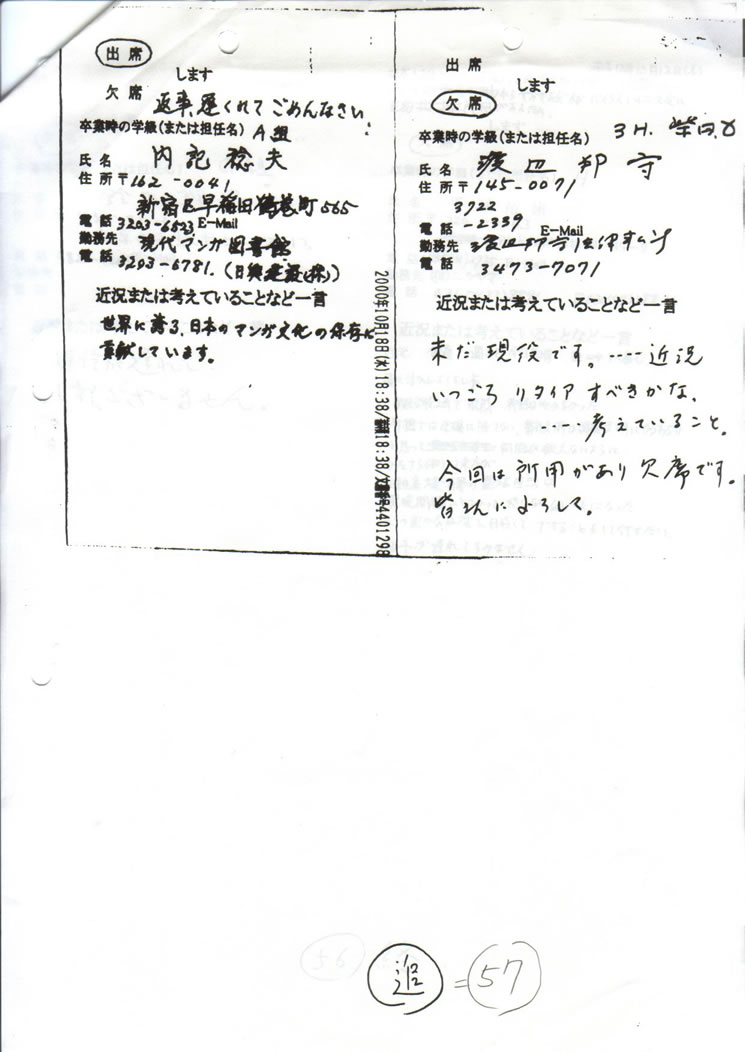 出席
します
欠席
返事遅くれてごめんなさい
卒業時の学級(または担任名) A組
氏名 内記稔夫
住所 〒162-0041
新宿区早稲田鶴巻町565
電話 3203-6523 E-Mail
勤務先 現代マンガ図書館
電話 3203-6781. (日興建設(株))
近況または考えていることなど一言
世界に誇る、日本のマンガ文化の保存に
貢献しています。
2000年10月18日(水)18:38/
18:38/
4401298
出席
します
欠席
卒業時の学級(または担任名) 3H.
氏名 渡辺 守
住所 〒145-0071
3722
電話 -2339 E-Mail
勤務先
電話 3473-7071
近況または考えていることなど一言
未だ現役です。----近況
いつごろリタイアすべきかな、
--- 考えていること。
今回は所用があり欠席です。
皆さんによろしく。
56
追 = 57